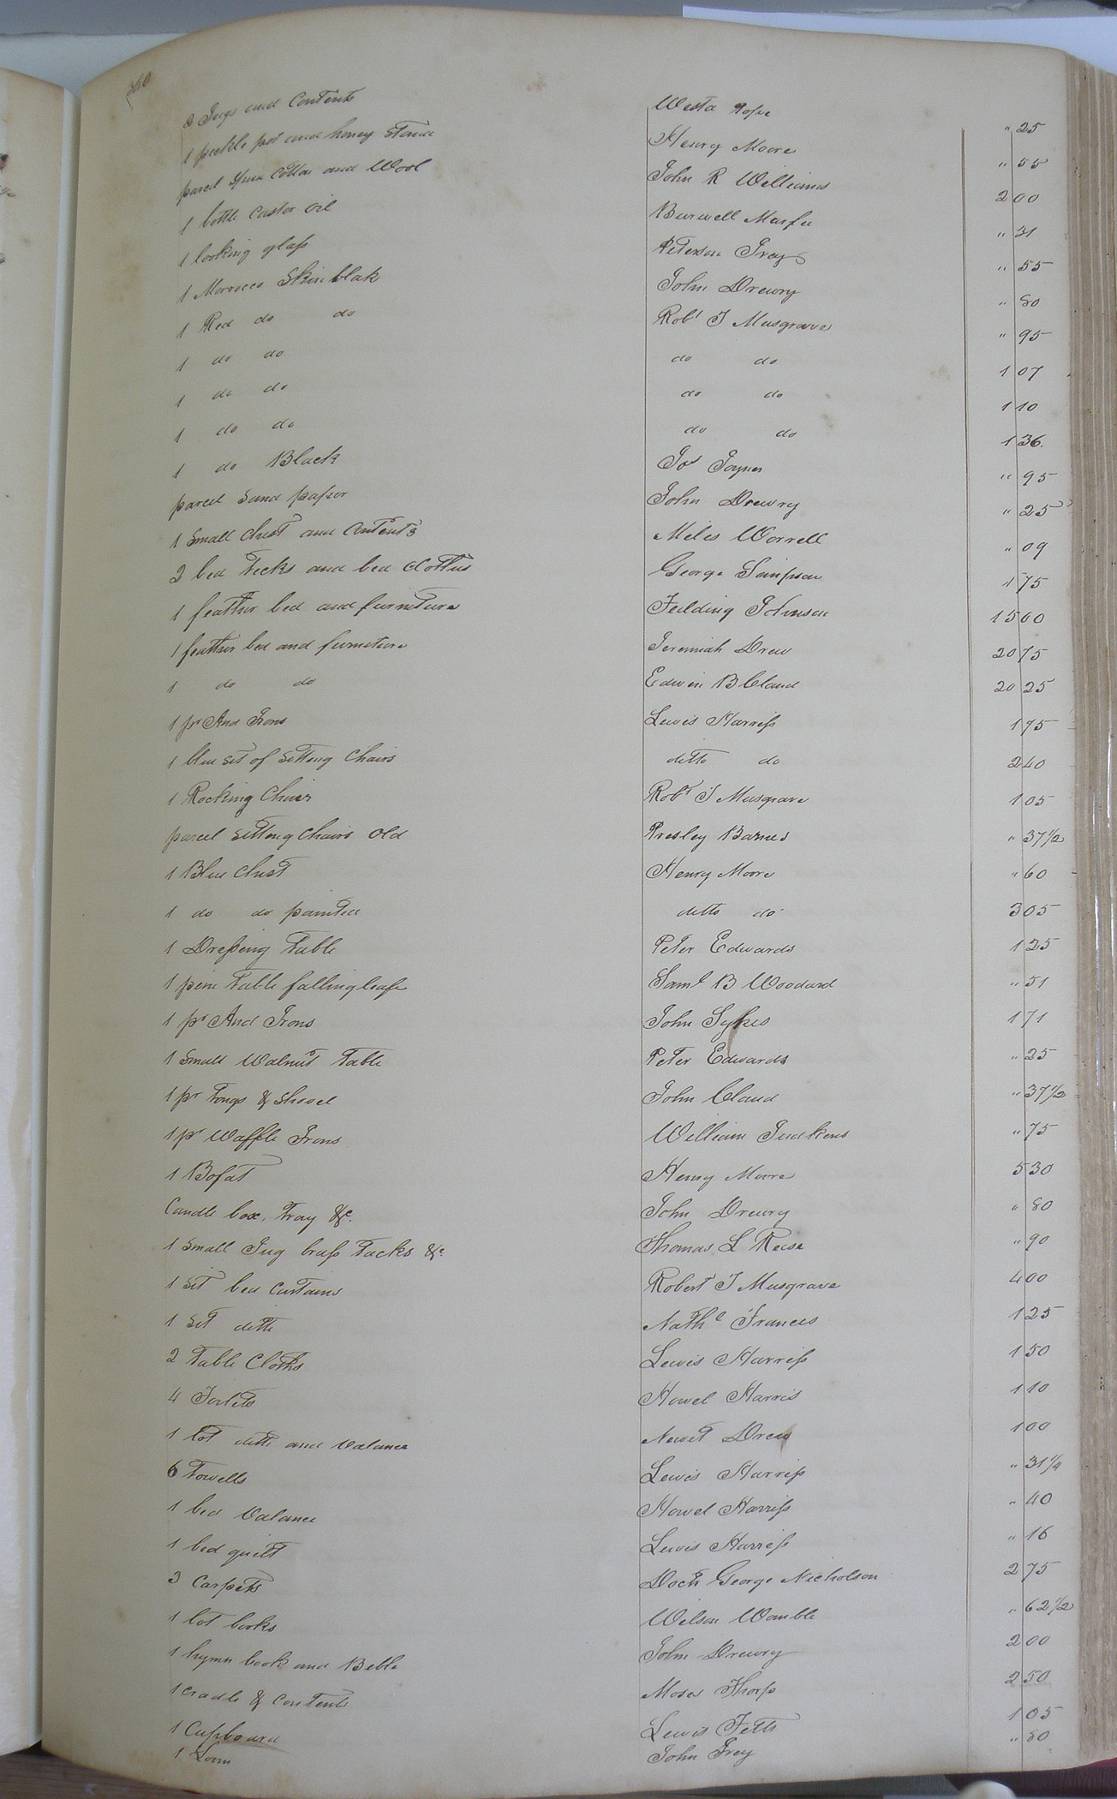 2 Jugs and Contents Westa Pope " 25
1 pickle pot and honey Stand Henry Moore " 55
parcel Spun Cotton and Wool John R Williams 2 00
1 bottle Castor Oil Burwell " 31
1 looking glass Peterson Ivey " 55
1 Morrocco Skin blak John Drewry " 80
1 Red do do Robt J Musgrave " 95
1 do do do do 1 07
1 do do do do 1 10
1 do do do do 1 36
1 do Black Jos Joyner " 95
parcel Sand paper John Drewry " 25
1 Small Chest and Contents Miles Worrell " 09
2 bed Ticks and bed Clothes George Simpson 1 75
1 feather bed and furniture Feilding Johnson 15 00
1 feather bed and furniture Jeremiah Drew 20 75
1 do do Edwin B Claud 20 25
1 pr And Irons Lewis Harriss 1 75
1 blue Set of Setting Chairs ditto do 2 40
1 Rocking Chair Robt J Musgrave 1 05
parcel Setting Chairs Old Presley Barnes " 37 1/2
1 Blue Chest Henry Moore " 60
1 do do painted ditto do 3 05
1 Dressing Table Peter Edwards 1 25
1 pine Table falling leafe Saml B Woodard " 51
1 pr And Irons John Sykes 1 71
1 Small Walnut Table Peter Edwards " 25
1 pr Tongs & Shovel John Claud " 37 1/2
1 pr Waffle Irons William Judkins " 75
1 Bofat Henry Moore 5 30
Candle box, Tray &c. John Drewry " 80
1 Small Jug brass Tacks &c Thomas L Reese " 90
1 Set bed Curtains Robert J Musgrave 4 00
1 Set ditto Nathl Frances 1 25
2 Table Cloths Lewis Harriss 1 50
4 Howel Harris 1 10
1 lot ditto and Valance Newit Drew 1 00
6 Towells Lewis Harriss " 31 1/4
1 bed Valance Howel Harriss " 40
1 bed quilt Lewis Harriss " 16
3 Carpets Doctr George Nicholson 2 75
1 lot books Wilson Womble " 62 1/2
1 hymn book and Bible John Drewry 2 00
1 Cradle & Contents Moses Thorp 2 50
1 Cupboard Lewis Fetts 1 05
1 Loom John Ivey " 50